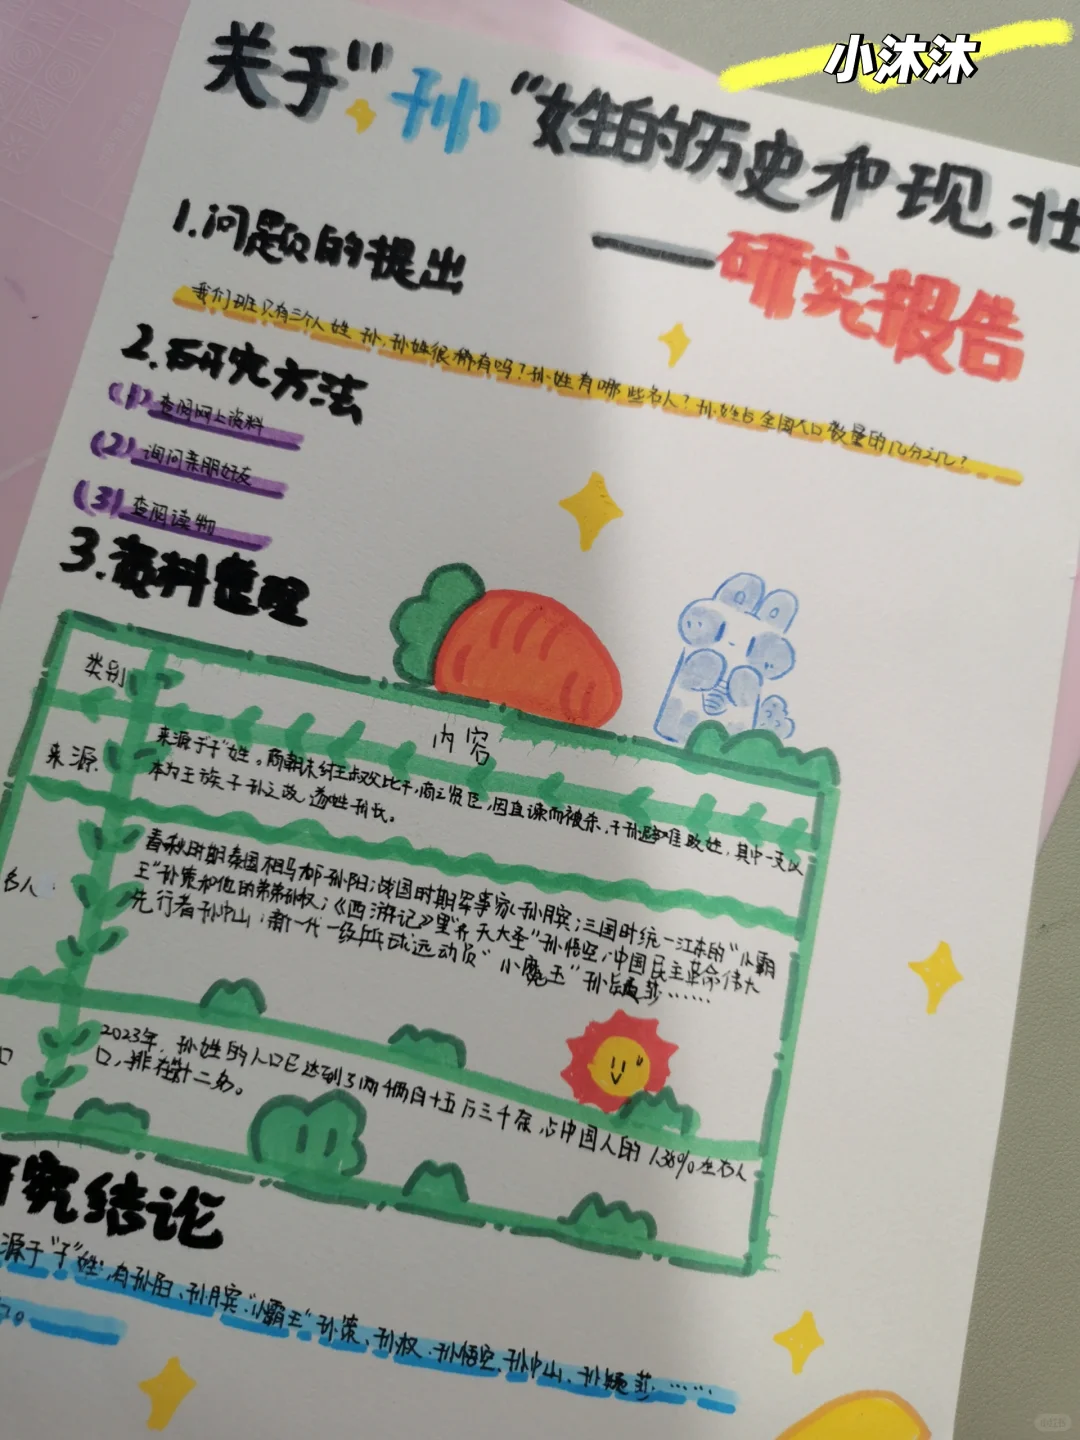 小沐沐
关于"孙"姓的历史和现壮
——研究报告
1.问题的提出
我们班只有三个人姓孙,孙姓很稀有吗?孙姓有哪些名人?孙姓占全国人口数量的几分之几?
2.研究方法
(1)查阅网上资料
(2)询问亲朋好友
(3)查阅读物
3.资料整理
类别
内容
来源
来源于子姓。商朝末纣王叔父比干,商之贤臣,因直谏而被杀,子孙避难改姓,其中一支以
本为王族子孙之故,遂姓孙氏。
名人
春秋时期秦国相马师孙阳;战国时期军事家孙膑;三国时统一江东的"小霸
王"孙策和他的弟弟孙权;《西游记》里"齐天大圣"孙悟空;中国民主革命伟大
先行者孙中山;新一代一级乒乓球运动员"小魔王"孙颖莎……
口
2023年,孙姓的人口已达到了两千俩百十五万三千余,占中国人的1.38%左右人
口,排在第十二名。
研究结论
源于"子"姓,有孙阳、孙膑、"小霸王"孙策、孙权、孙悟空、孙中山、孙颖莎……
小红书